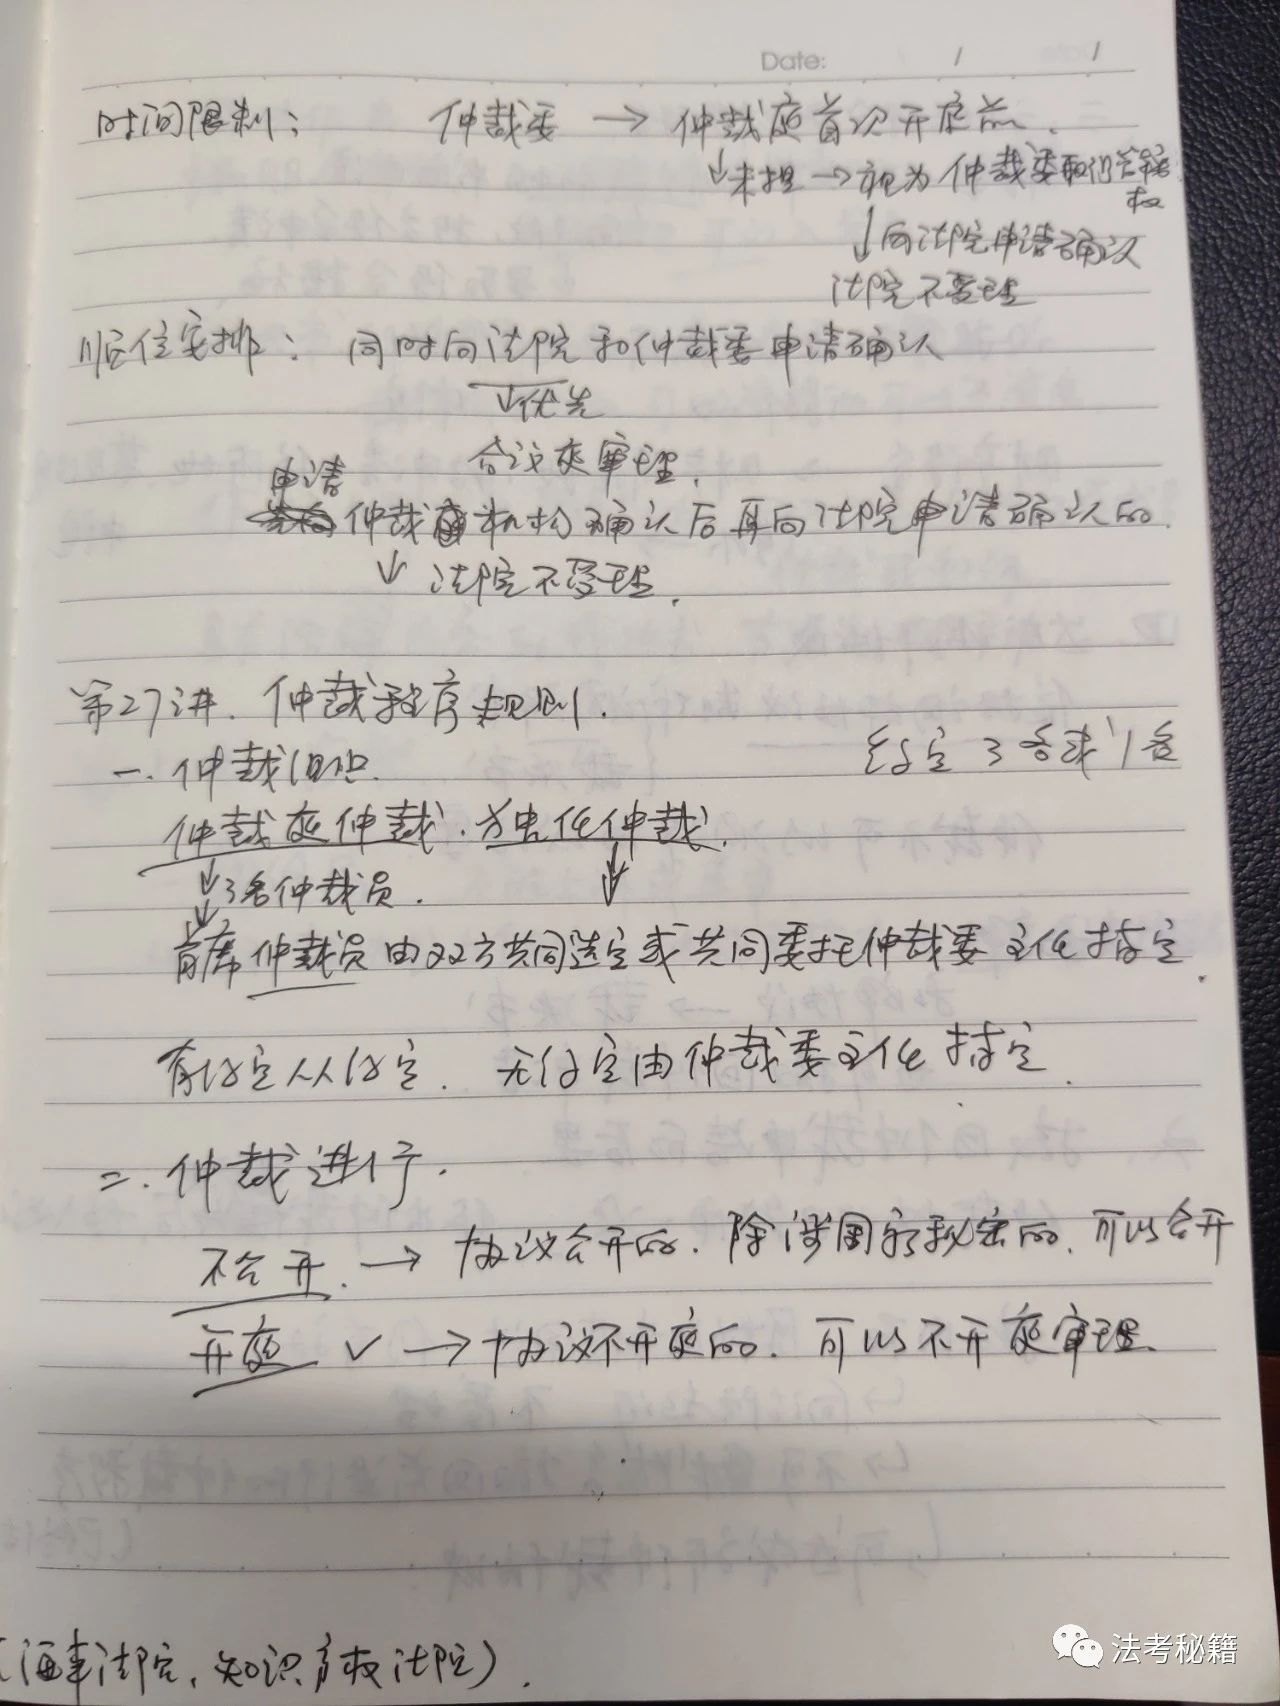 Date: / /
时间限制： 仲裁委 → 仲裁庭首次开庭前.
↓未提 → 视为仲裁委取得管辖
权
↓向法院申请确认
法院不受理
顺位安排： 同时向法院和仲裁委申请确认
↓优先
合议庭审理.
申请
仲裁机构确认后再向法院申请确认的.
↓ 法院不受理.
第27讲. 仲裁程序规则.
一. 仲裁组织. 约定3名或1名
仲裁庭仲裁. 独任仲裁.
↓3名仲裁员. ↓
↓
首席仲裁员由双方共同选定或共同委托仲裁委主任指定.
有约定从约定. 无约定由仲裁委主任指定.
二. 仲裁进行.
不公开. → 协议公开的. 除涉国家秘密的. 可以公开
开庭 ✓ → 协议不开庭的. 可以不开庭审理.
(海事法院, 知识产权法院).
法考秘籍